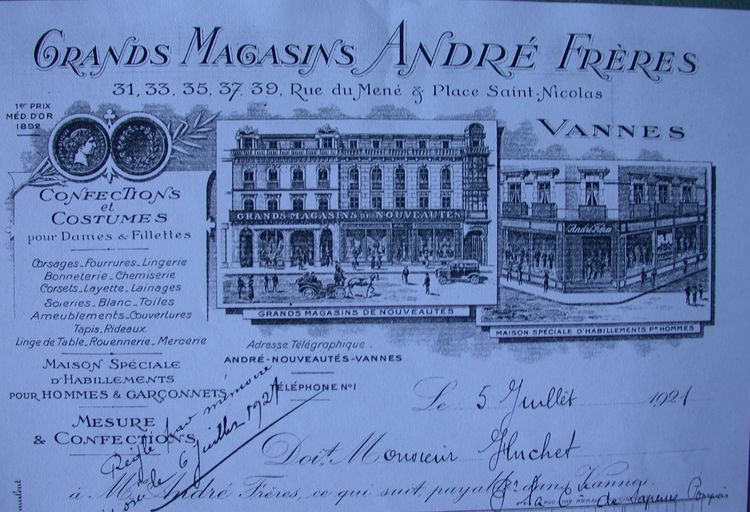 GRANDS MAGASINS ANDRÉ FRÈRES
31, 33, 35, 37, 39, Rue du Mené & Place Saint-Nicolas
VANNES
1er PRIX
MÉD. D'OR
1892
CONFECTIONS
et
COSTUMES
pour Dames & Fillettes
Corsages_Fourrures_Lingerie
Bonneterie_Chemiserie
Corsets_Layette_Lainages
Soieries_Blanc_Toiles
Ameublements_Couvertures
Tapis_Rideaux
Linge de Table_Rouennerie_Mercerie
MAISON SPÉCIALE
D'HABILLEMENTS
POUR HOMMES & GARÇONNETS
MESURE
& CONFECTIONS
GRANDS MAGASINS DE NOUVEAUTÉS
GRANDS MAGASINS DE NOUVEAUTÉS
André Frères
MAISON SPÉCIALE D'HABILLEMENTS Pr HOMMES
Adresse Télégraphique.
ANDRÉ-NOUVEAUTÉS-VANNES
TÉLÉPHONE No 1
Réglé par mémoire
6 Juillet 1921
Le 5 Juillet 1921
Doit Monsieur Huchet
à MM. André Frères, ce qui suit, payable dans Vannes.
de Sapeurs Pompiers